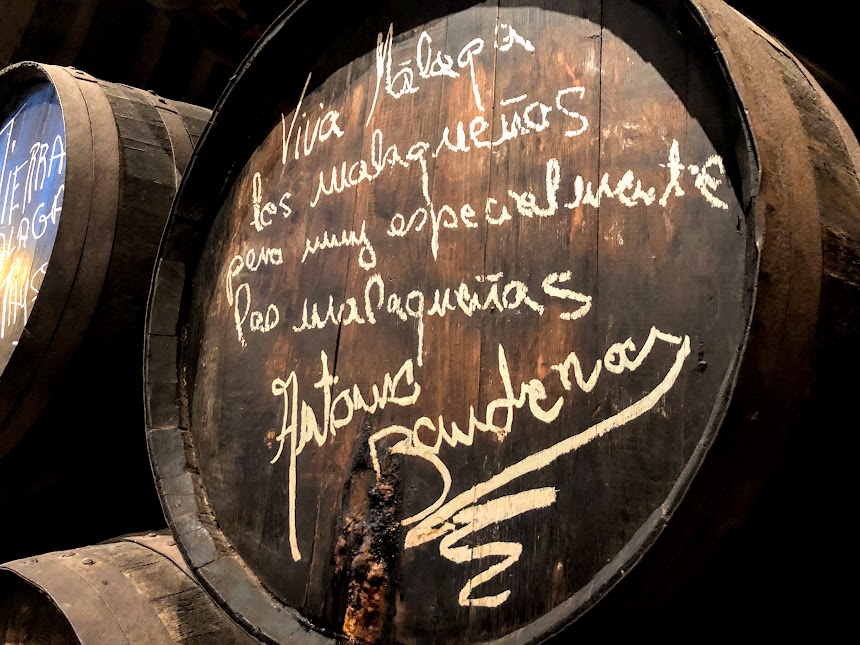 TIERRA
Viva Málaga
los malagueños
pero muy especialmente
las malagueñas
Antonio
Banderas